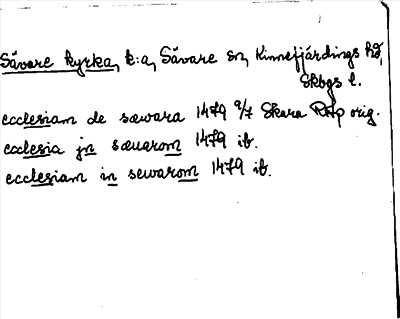 Såvare kyrka, k:a, Såvare sn, Kinnefjärdings hd,
Skbgs l.
ecclesiam de sawara 1479 9/7 Skara RAp orig.
ecclesia jn sæuarom 1479 ib.
ecclesiam in sewarom 1479 ib.